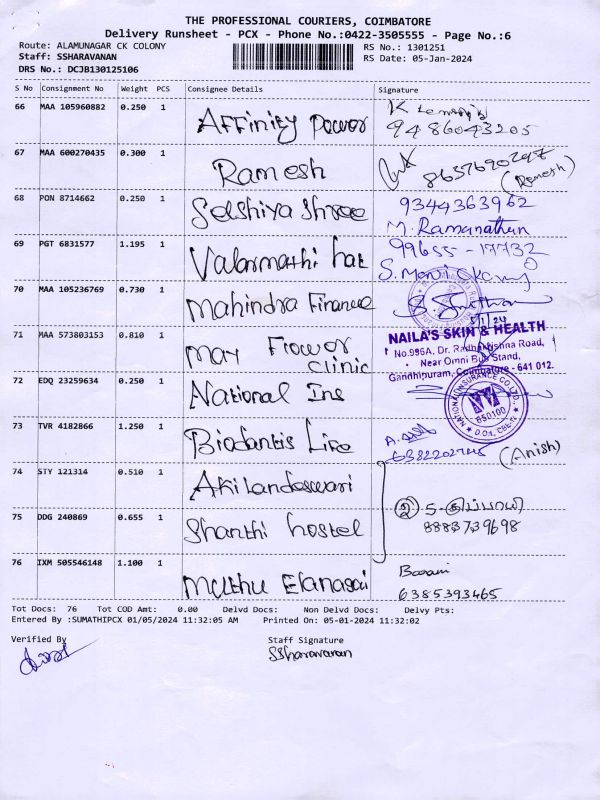 THE PROFESSIONAL COURIERS, COIMBATORE
Delivery Runsheet - PCX - Phone No.:0422-3505555 - Page No.:6
Route: ALAMUNAGAR CK COLONY RS No.: 1301251
Staff: SSHARAVANAN RS Date: 05-Jan-2024
DRS No.: DCJB130125106
S No Consignment No Weight PCS Consignee Details Signature
66 MAA 105960882 0.250 1 Affinity Power 9486043205
67 MAA 600270435 0.300 1 Ramesh (Ramesh)
68 PON 8714662 0.250 1 Selshiva Shree 9344363962
M. Ramanathan
69 PGT 6831577 1.195 1 Valarmathi hat 99655-17732
70 MAA 105236769 0.730 1 Mahindra Finance
71 MAA 573803153 0.810 1 May Flower
clinic
NAILA'S SKIN & HEALTH
No.996A, Dr. Radhakrishna Road,
Near Omni Bus Stand,
Gandhipuram, Coimbatore - 641 012.
72 EDQ 23259634 0.250 1 National Ins
NATIONAL INSURANCE CO. LTD.
850100
73 TVR 4182866 1.250 1 Biodantis Life (Anish)
74 STY 121314 0.510 1 Akilandeswari
75 DDG 240869 0.655 1 Shanthi hostel 8883739698
76 IXM 505546148 1.100 1 Muthu Elanagai 6385393465
Tot Docs: 76 Tot COD Amt: 0.00 Delvd Docs: Non Delvd Docs: Delvy Pts:
Entered By :SUMATHIPCX 01/05/2024 11:32:05 AM Printed On: 05-01-2024 11:32:02
Verified By Staff Signature
SSharavanan